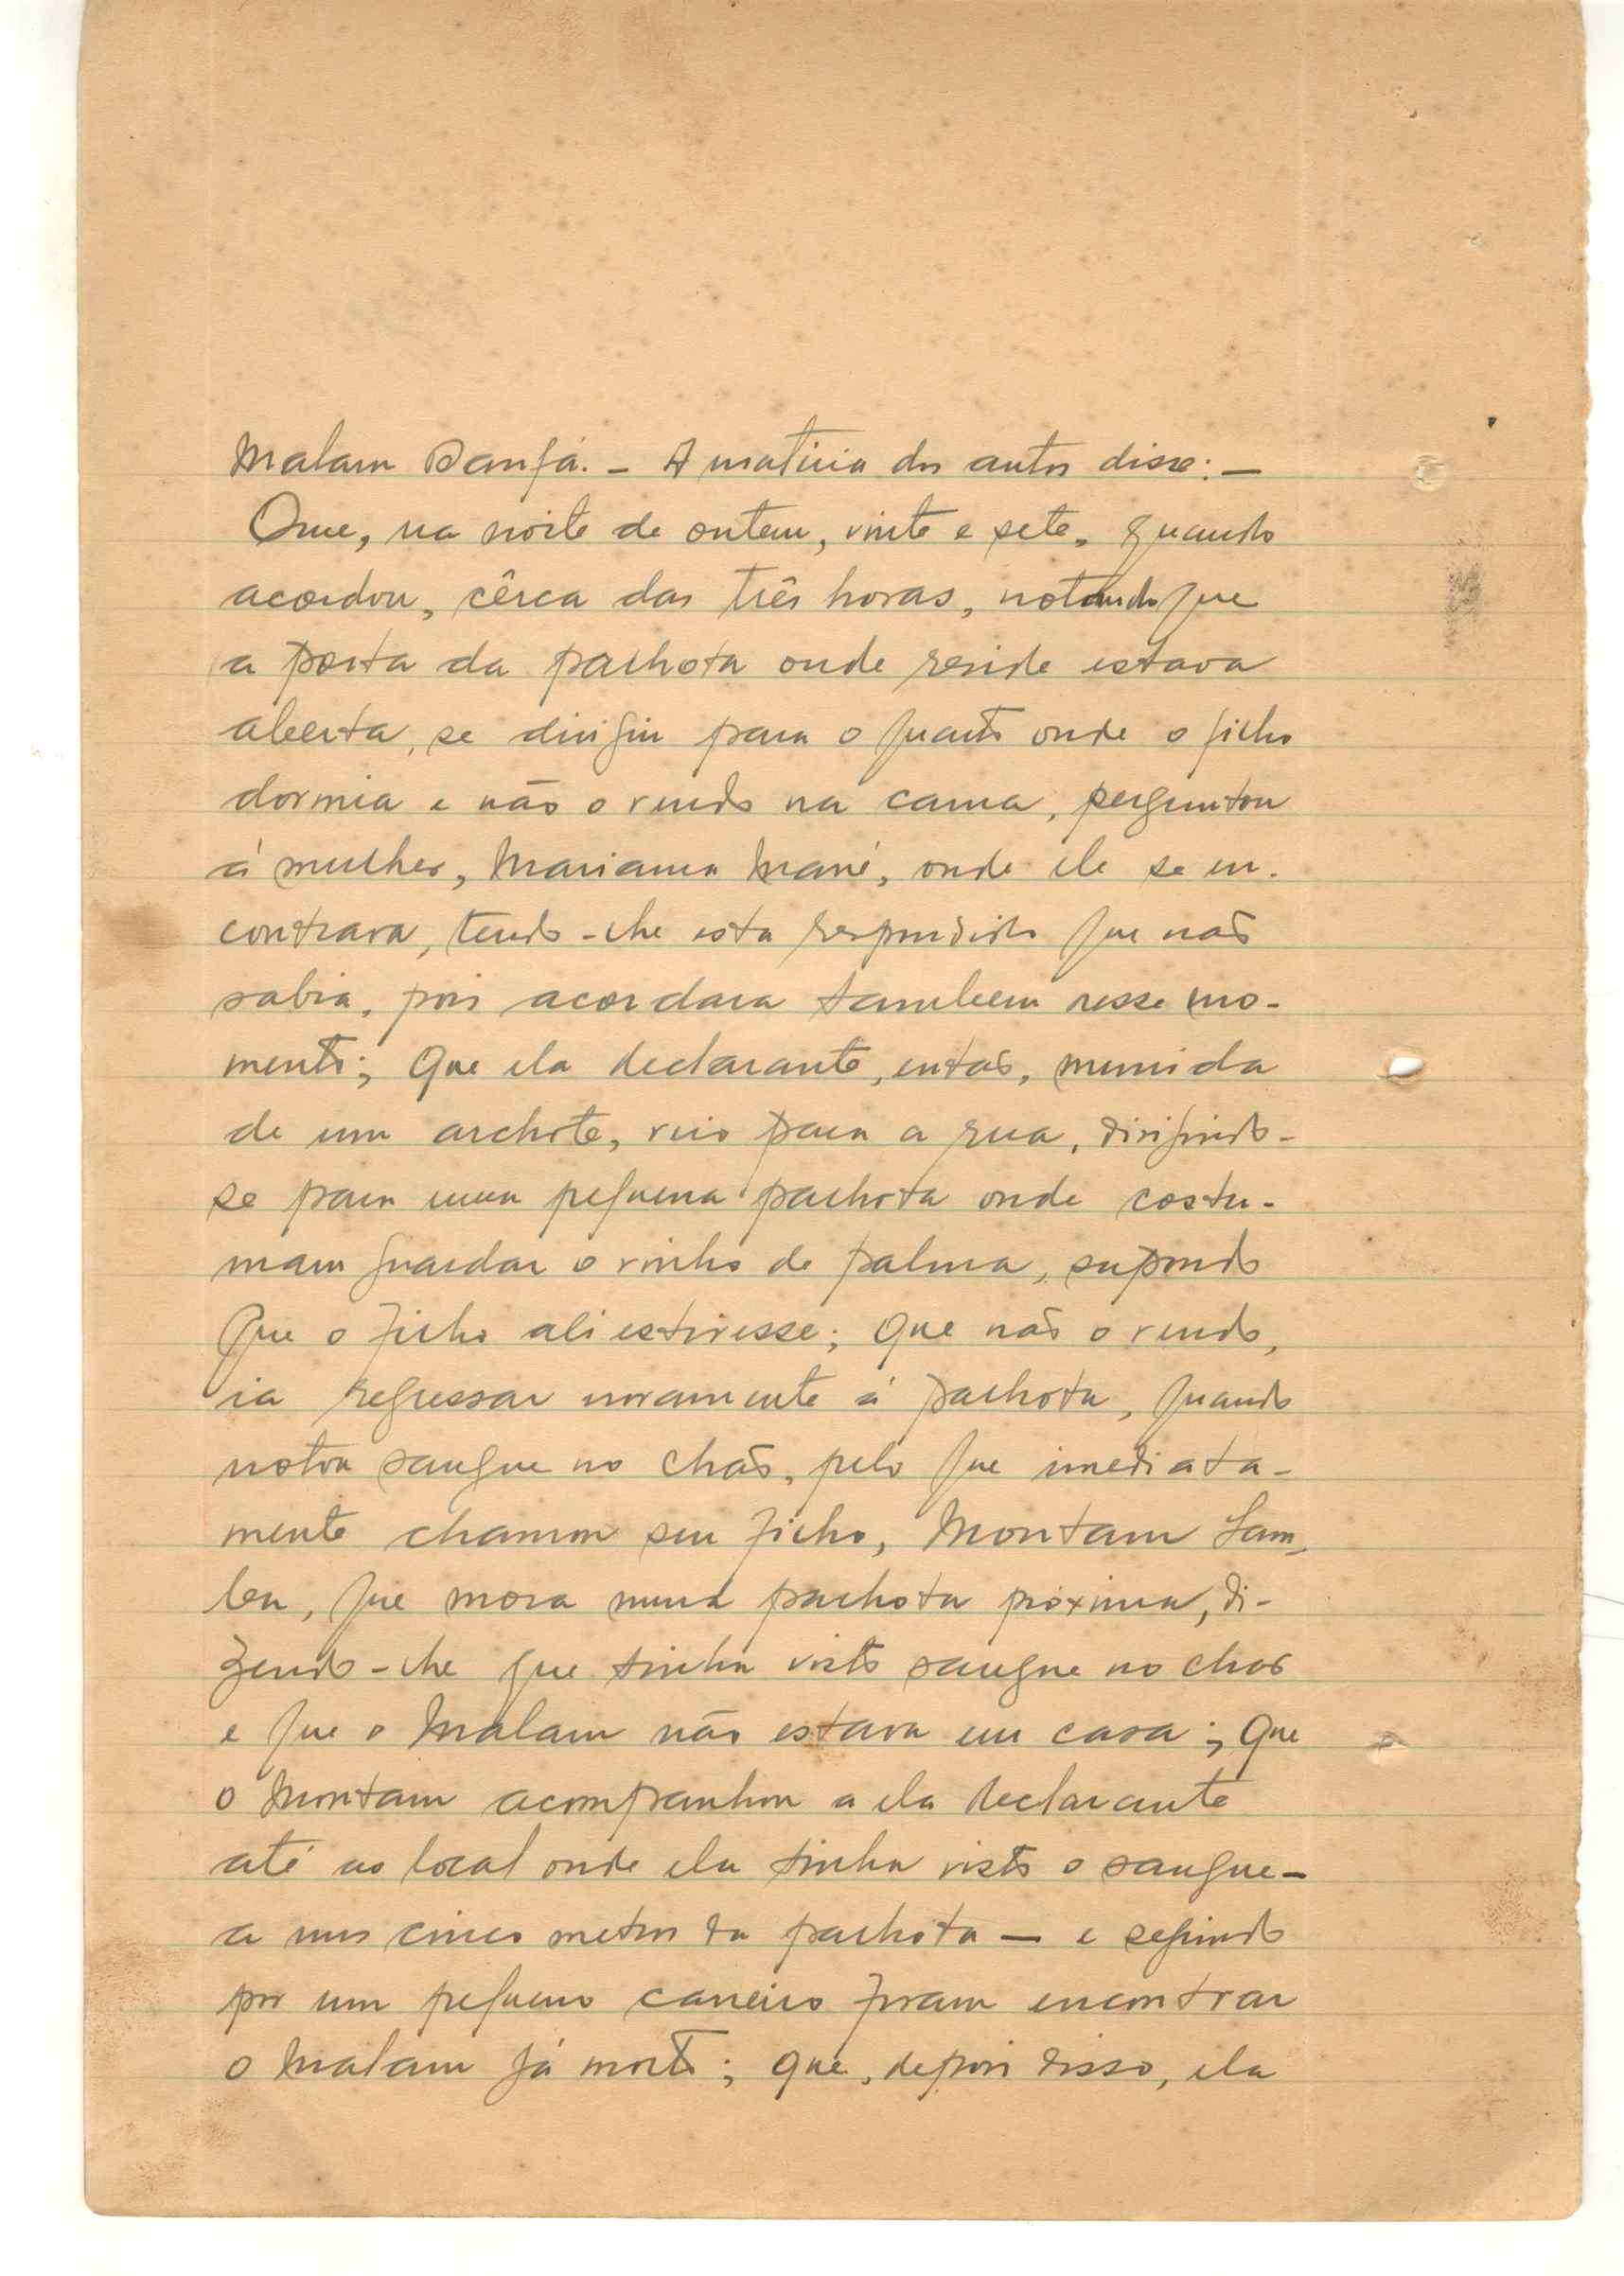 Malam Danfá. - A matéria dos autos disse: -
Que, na noite de ontem, vinte e sete, quando
acordou, cêrca das três horas, notando que
a porta da palhota onde reside estava
aberta, se dirigiu para o quarto onde o filho
dormia e não o vendo na cama, perguntou
á mulher, Mariama Mané, onde ele se en-
contrava, tendo-lhe esta respondido que não
sabia, pois acordara tambem nesse mo-
mento; Que ela declarante, então, munida
de um archote, veio para a rua, dirigindo-
se para uma pequena palhota onde costu-
mam guardar o vinho de palma, supondo
que o filho ali estivesse; Que não o vendo,
ia regressar novamente á palhota, quando
notou sangue no chão, pelo que imediata-
mente chamou seu filho, Montam Sam-
bu, que mora numa palhota próxima, di-
zendo-lhe que tinha visto sangue no chão
e que o Malam não estava em casa; Que
o Montam acompanhou a ela declarante
até ao local onde ela tinha visto o sangue -
a uns cinco metros da palhota — e seguindo
por um pequeno carreiro foram encontrar
o Malam já morto; Que, depois disso, ela